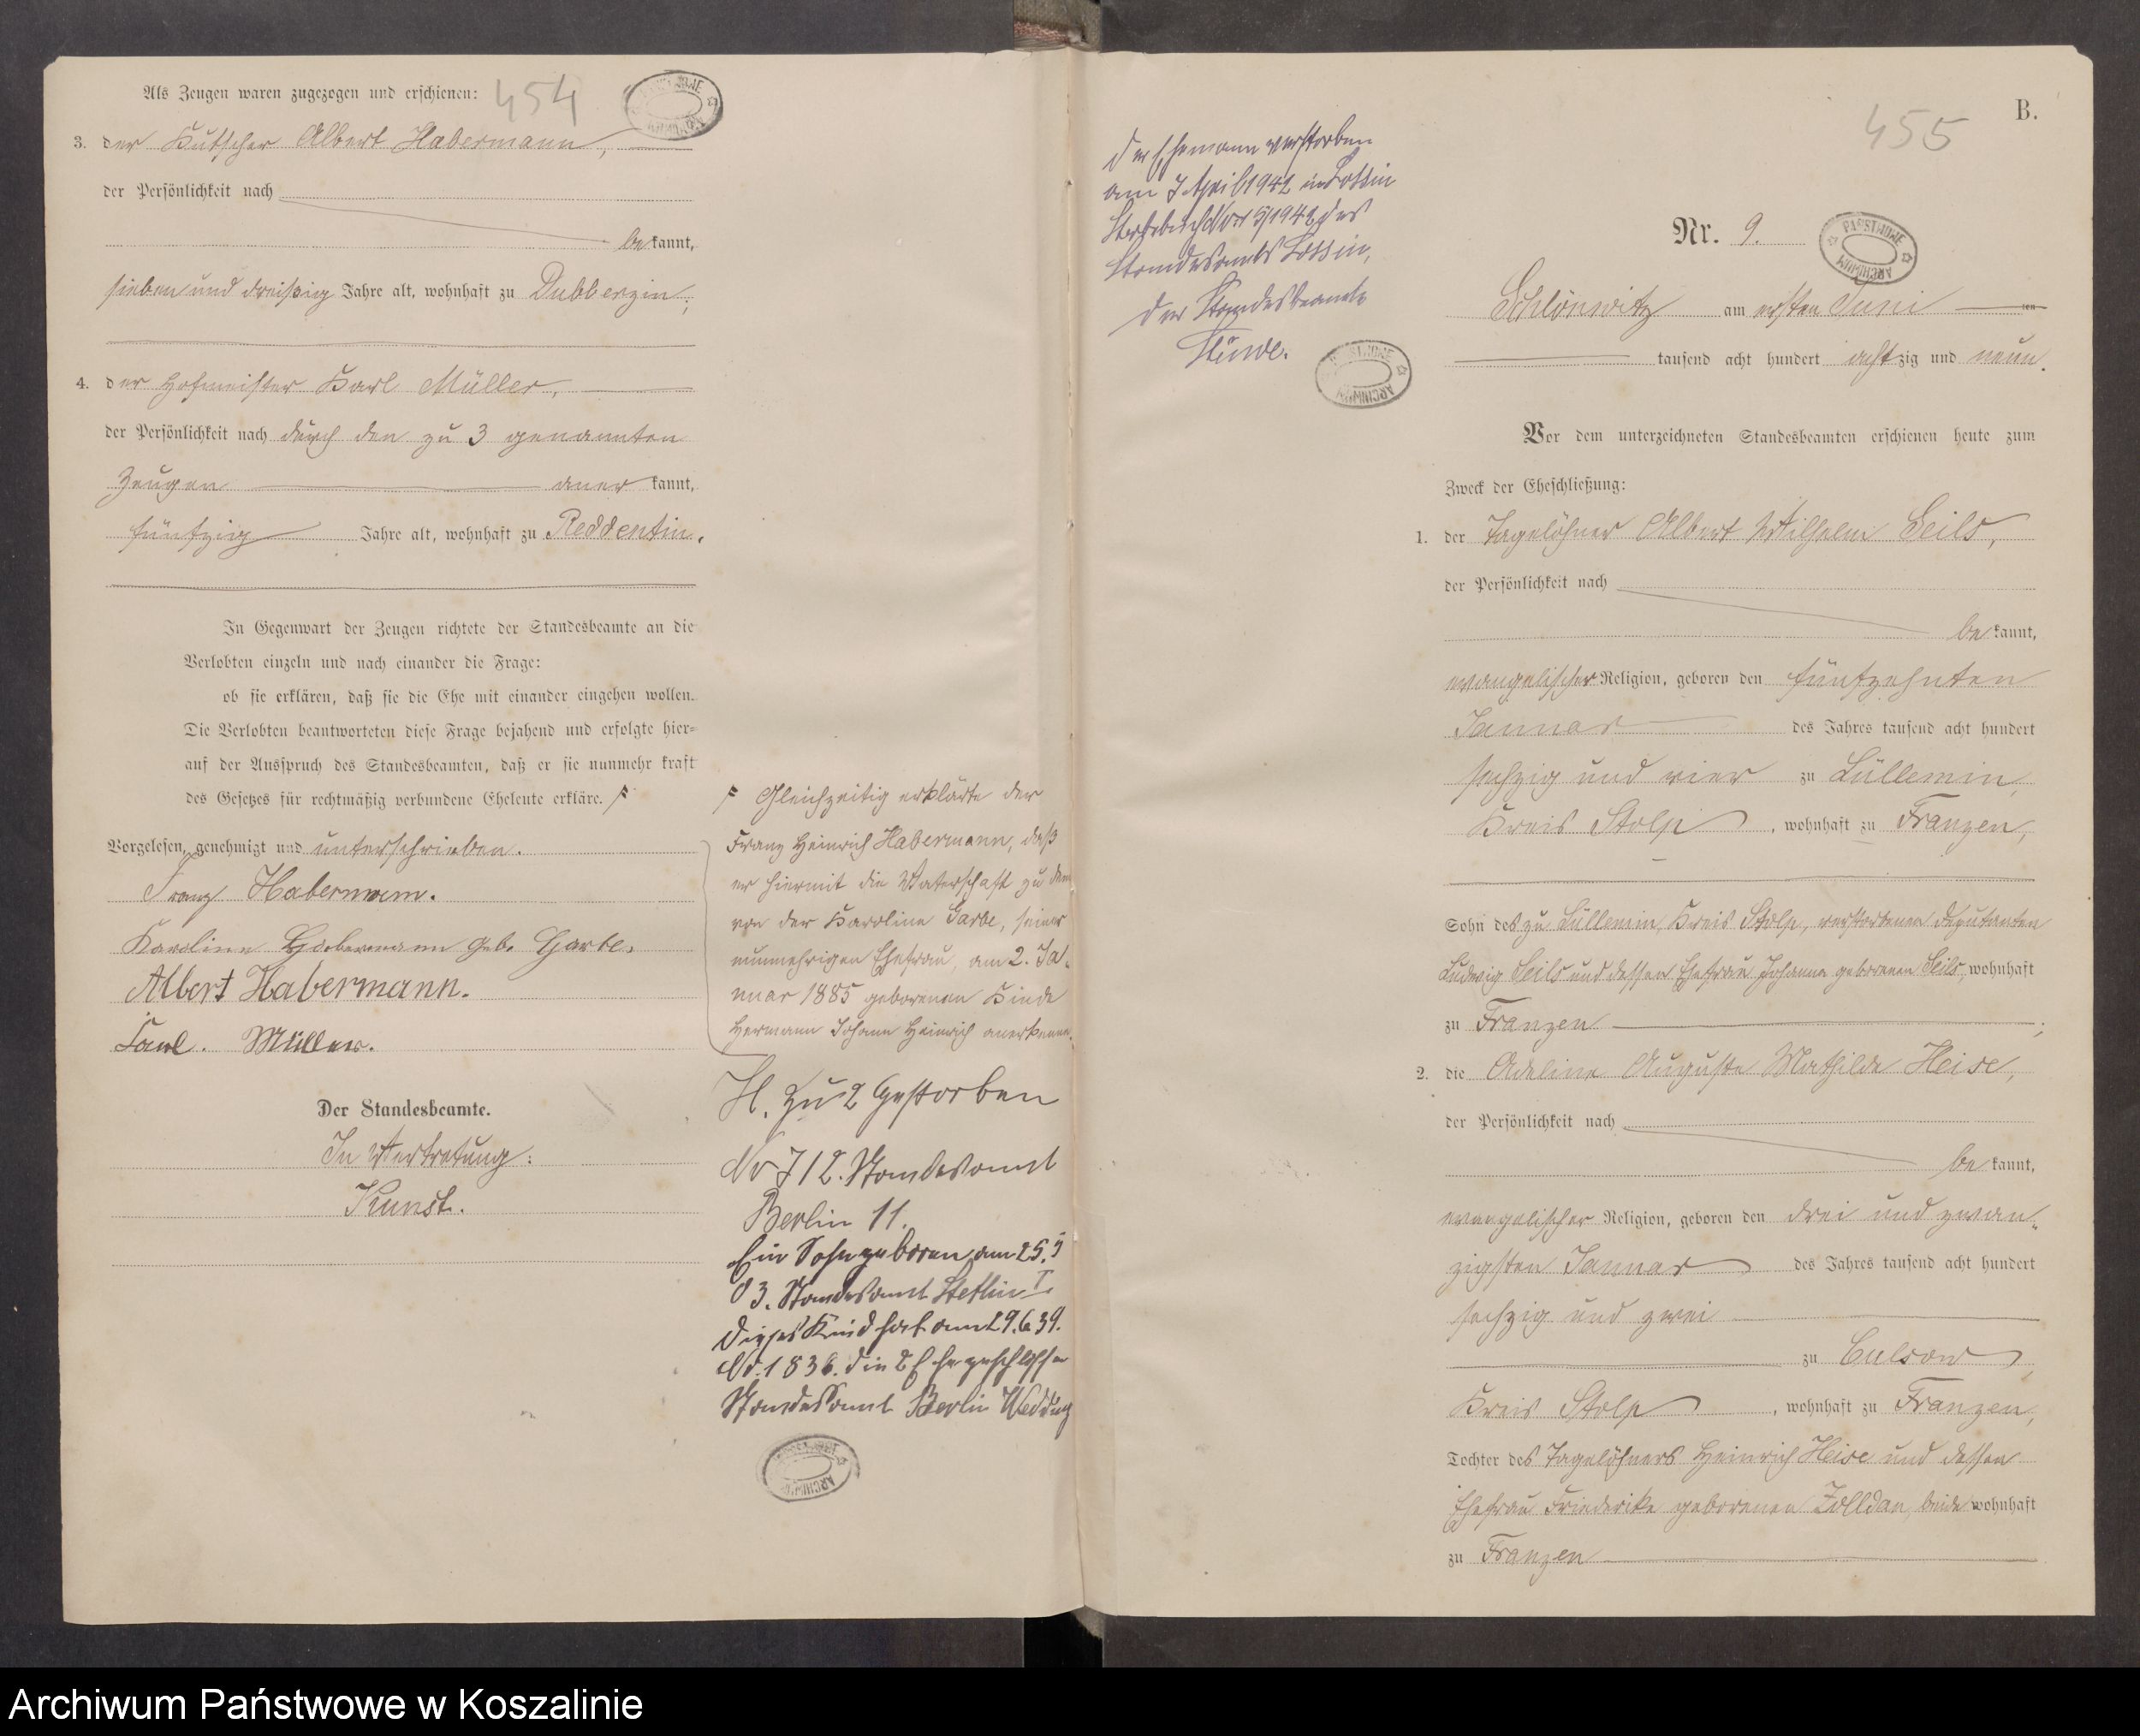 Als Zeugen waren zugezogen und erschienen:
454
3. der Kutscher Albert Habermann,
der Persönlichkeit nach
bekannt,
sieben und dreißig Jahre alt, wohnhaft zu Dubberzin;
4. der Hofmeister Karl Müller,
der Persönlichkeit nach durch den zu 3 genannten
Zeugen anerkannt,
fünfzig Jahre alt, wohnhaft zu Reddentin.
In Gegenwart der Zeugen richtete der Standesbeamte an die
Verlobten einzeln und nach einander die Frage:
ob sie erklären, daß sie die Ehe mit einander eingehen wollen.
Die Verlobten beantworteten diese Frage bejahend und erfolgte hier-
auf der Ausspruch des Standesbeamten, daß er sie nunmehr kraft
des Gesetzes für rechtmäßig verbundene Eheleute erkläre.
Vorgelesen, genehmigt und unterschrieben.
Franz Habermann.
Karoline Habermann geb. Garbe.
Albert Habermann.
Karl. Müller.
Der Standesbeamte.
In Vertretung:
Kunst.
Gleichzeitig erklärte der
Franz Heinrich Habermann, daß
er hiermit die Vaterschaft zu dem
von der Karoline Garbe, seiner
nunmehrigen Ehefrau, am 2. Ja-
nuar 1885 geborenen Kinde
Hermann Johann Heinrich anerkenne.
H. zu 2 Gestorben
No 712. Standesamt
Berlin 11.
Ein Sohn geboren am 25. 5
03. Standesamt Stettin I
Dieses Kind hat am 29.6.39.
No. 1836. die 2 Ehe geschlossen
Standesamt Berlin Wedding
Der Ehemann verstorben
am 7 April 1942 in Lossin
Sterbebuch Nr 5/1942 des
Standesamts Lossin,
Der Standesbeamte
455
B.
Nr. 9.
Schlönwitz am ersten Juni
tausend acht hundert achtzig und neun.
Vor dem unterzeichneten Standesbeamten erschienen heute zum
Zweck der Eheschließung:
1. der Tagelöhner Albert Wilhelm Seils,
der Persönlichkeit nach
bekannt,
evangelischer Religion, geboren den fünfzehnten
Januar des Jahres tausend acht hundert
sechzig und vier zu Lüllemin,
Kreis Stolp, wohnhaft zu Franzen,
Sohn des zu Lüllemin, Kreis Stolp, verstorbenen Deputanten
Ludwig Seils und dessen Ehefrau Johanna geborenen Seils, wohnhaft
zu Franzen;
2. die Adeline Auguste Mathilde Heise,
der Persönlichkeit nach
bekannt,
evangelischer Religion, geboren den drei und zwan-
zigsten Januar des Jahres tausend acht hundert
sechzig und zwei
zu Culsow,
Kreis Stolp, wohnhaft zu Franzen,
Tochter des Tagelöhners Heinrich Heise und dessen
Ehefrau Friederike geborenen Zolldan, beide wohnhaft
zu Franzen
Archiwum Państwowe w Koszalinie